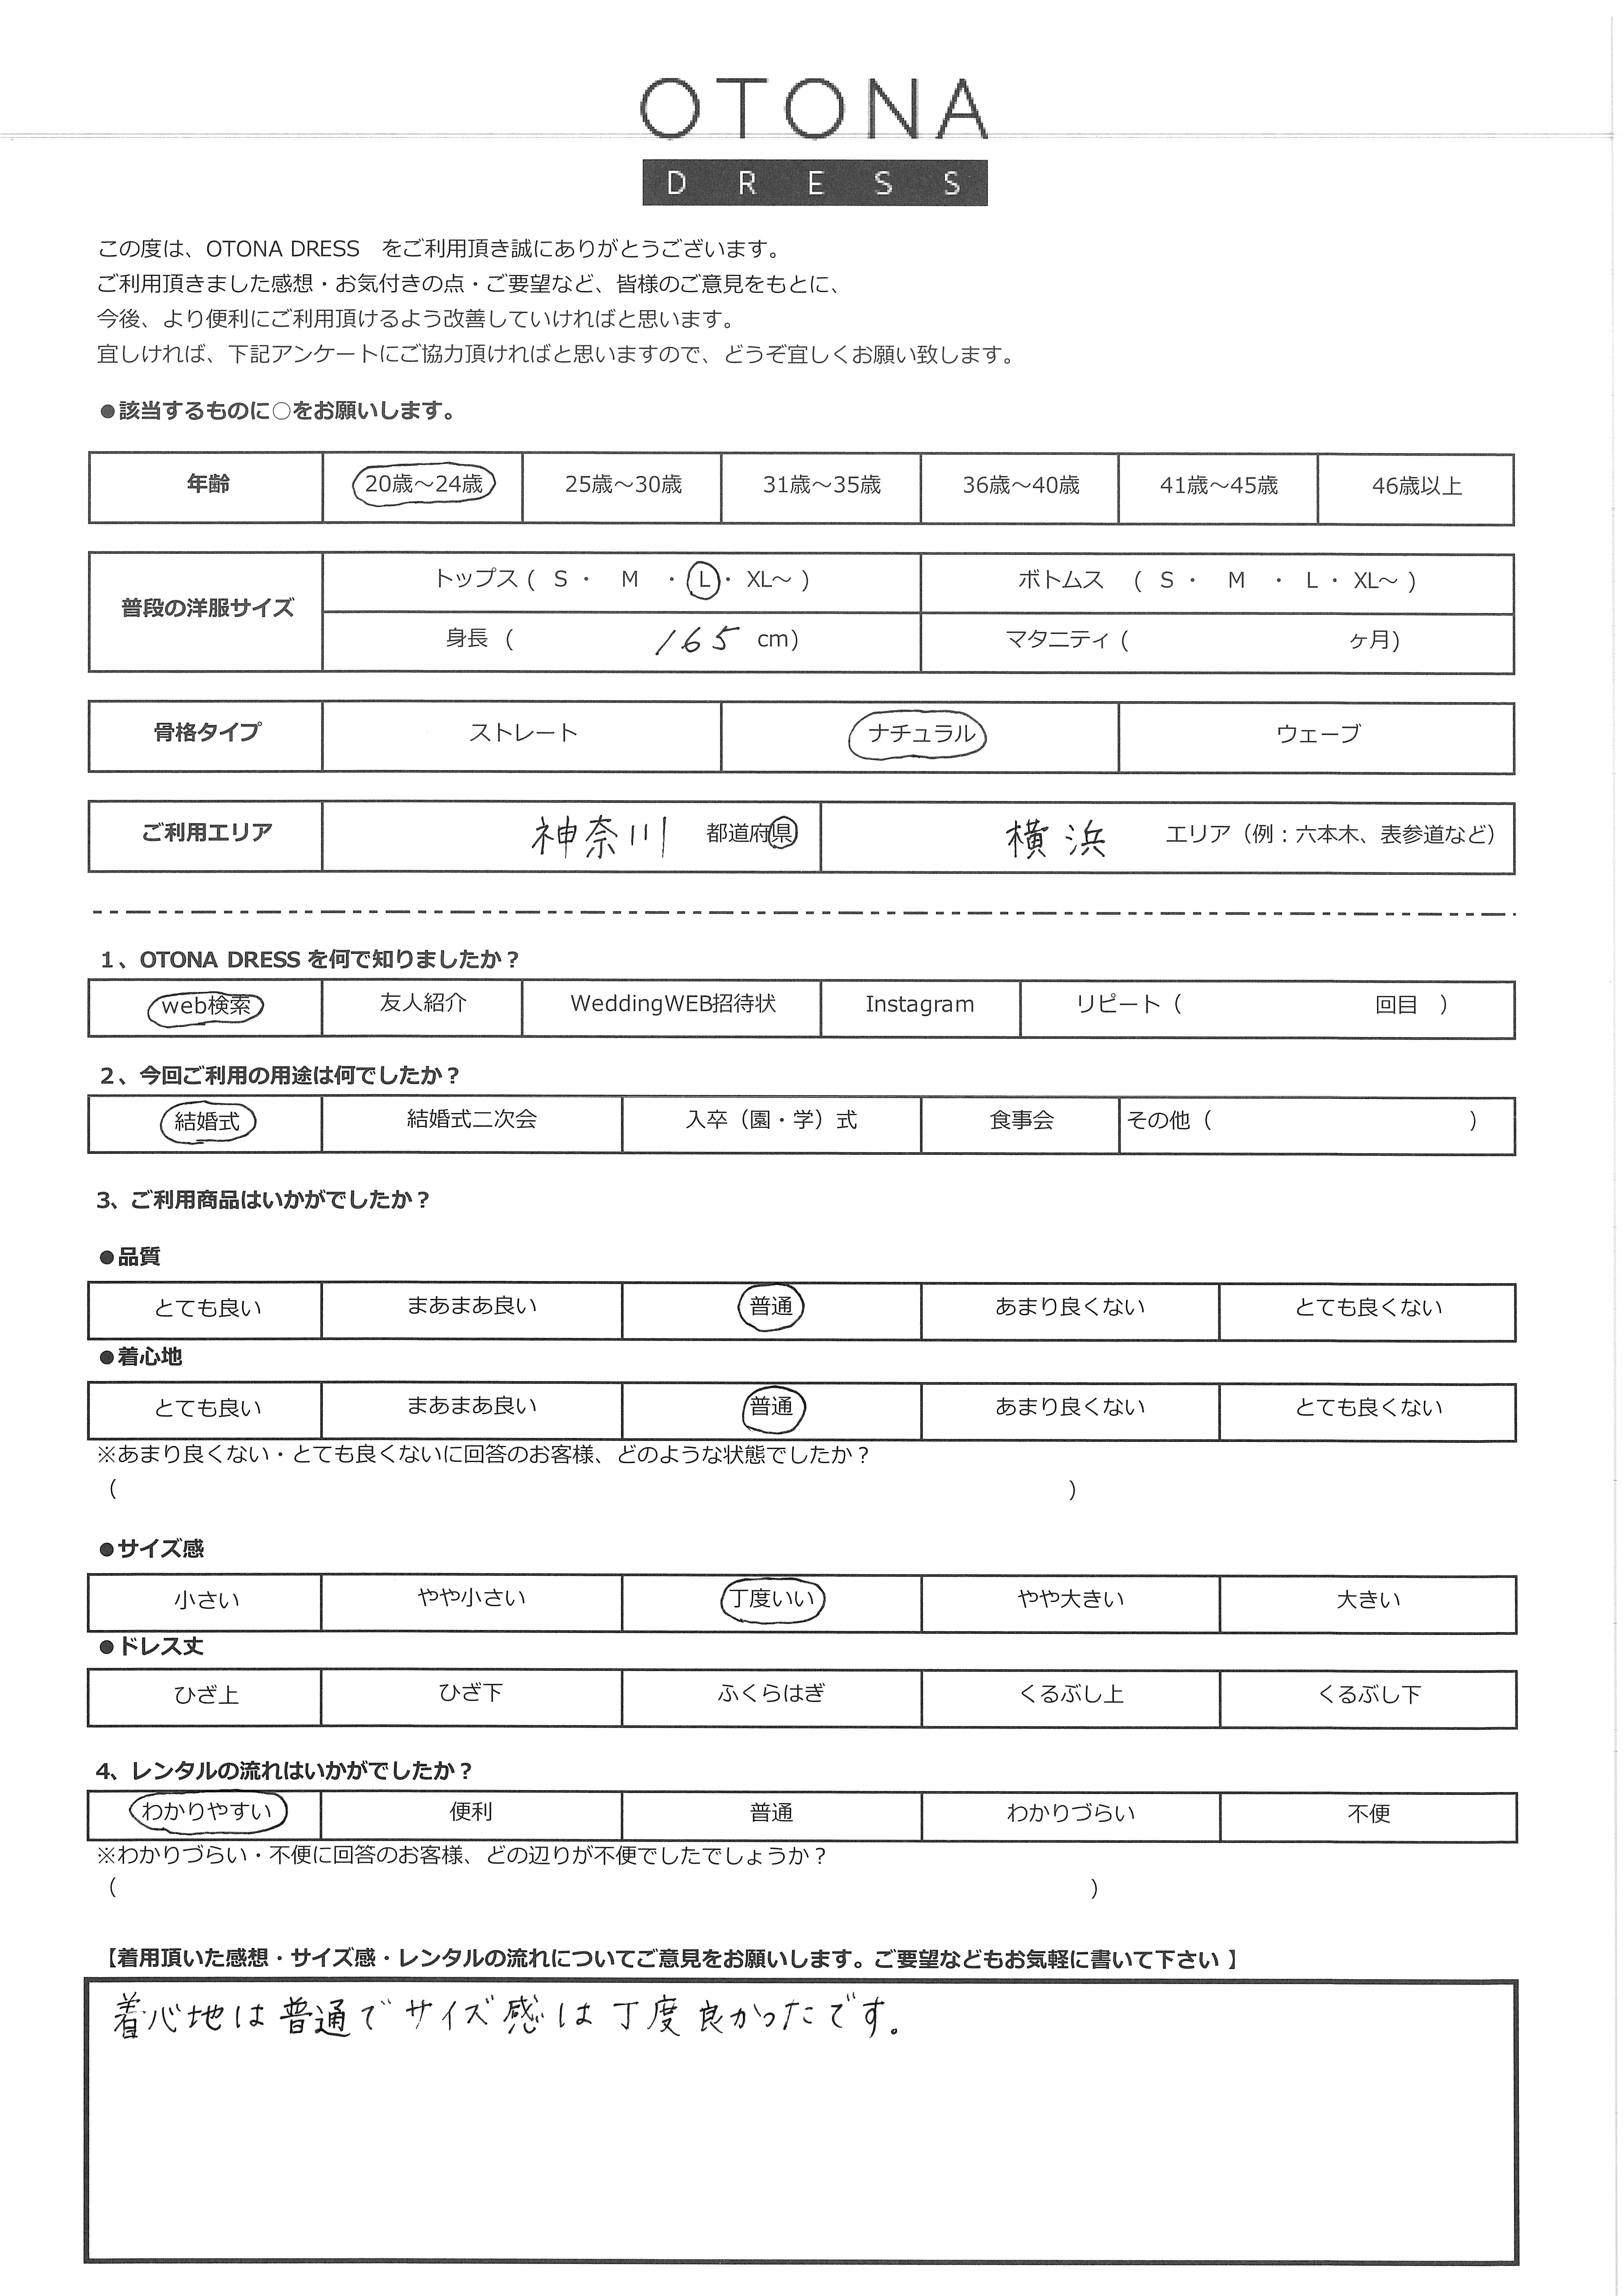 OTONA
DRESS
この度は、OTONA DRESS　をご利用頂き誠にありがとうございます。
ご利用頂きました感想・お気付きの点・ご要望など、皆様のご意見をもとに、
今後、より便利にご利用頂けるよう改善していければと思います。
宜しければ、下記アンケートにご協力頂ければと思いますので、どうぞ宜しくお願い致します。
●該当するものに○をお願いします。
年齢 20歳～24歳 25歳～30歳 31歳～35歳 36歳～40歳 41歳～45歳 46歳以上
普段の洋服サイズ トップス ( S ・ M ・ L ・ XL～ ) ボトムス ( S ・ M ・ L ・ XL～ )
身長 ( 165 cm) マタニティ ( ヶ月)
骨格タイプ ストレート ナチュラル ウェーブ
ご利用エリア 神奈川 都道府県 横浜 エリア（例：六本木、表参道など）
1、OTONA DRESS を何で知りましたか？
web検索 友人紹介 WeddingWEB招待状 Instagram リピート（ 回目 ）
2、今回ご利用の用途は何でしたか？
結婚式 結婚式二次会 入卒（園・学）式 食事会 その他（ ）
3、ご利用商品はいかがでしたか？
●品質
とても良い まあまあ良い 普通 あまり良くない とても良くない
●着心地
とても良い まあまあ良い 普通 あまり良くない とても良くない
※あまり良くない・とても良くないに回答のお客様、どのような状態でしたか？
（ ）
●サイズ感
小さい やや小さい 丁度いい やや大きい 大きい
●ドレス丈
ひざ上 ひざ下 ふくらはぎ くるぶし上 くるぶし下
4、レンタルの流れはいかがでしたか？
わかりやすい 便利 普通 わかりづらい 不便
※わかりづらい・不便に回答のお客様、どの辺りが不便でしたでしょうか？
（ ）
【着用頂いた感想・サイズ感・レンタルの流れについてご意見をお願いします。ご要望などもお気軽に書いて下さい 】
着心地は普通でサイズ感は丁度良かったです。